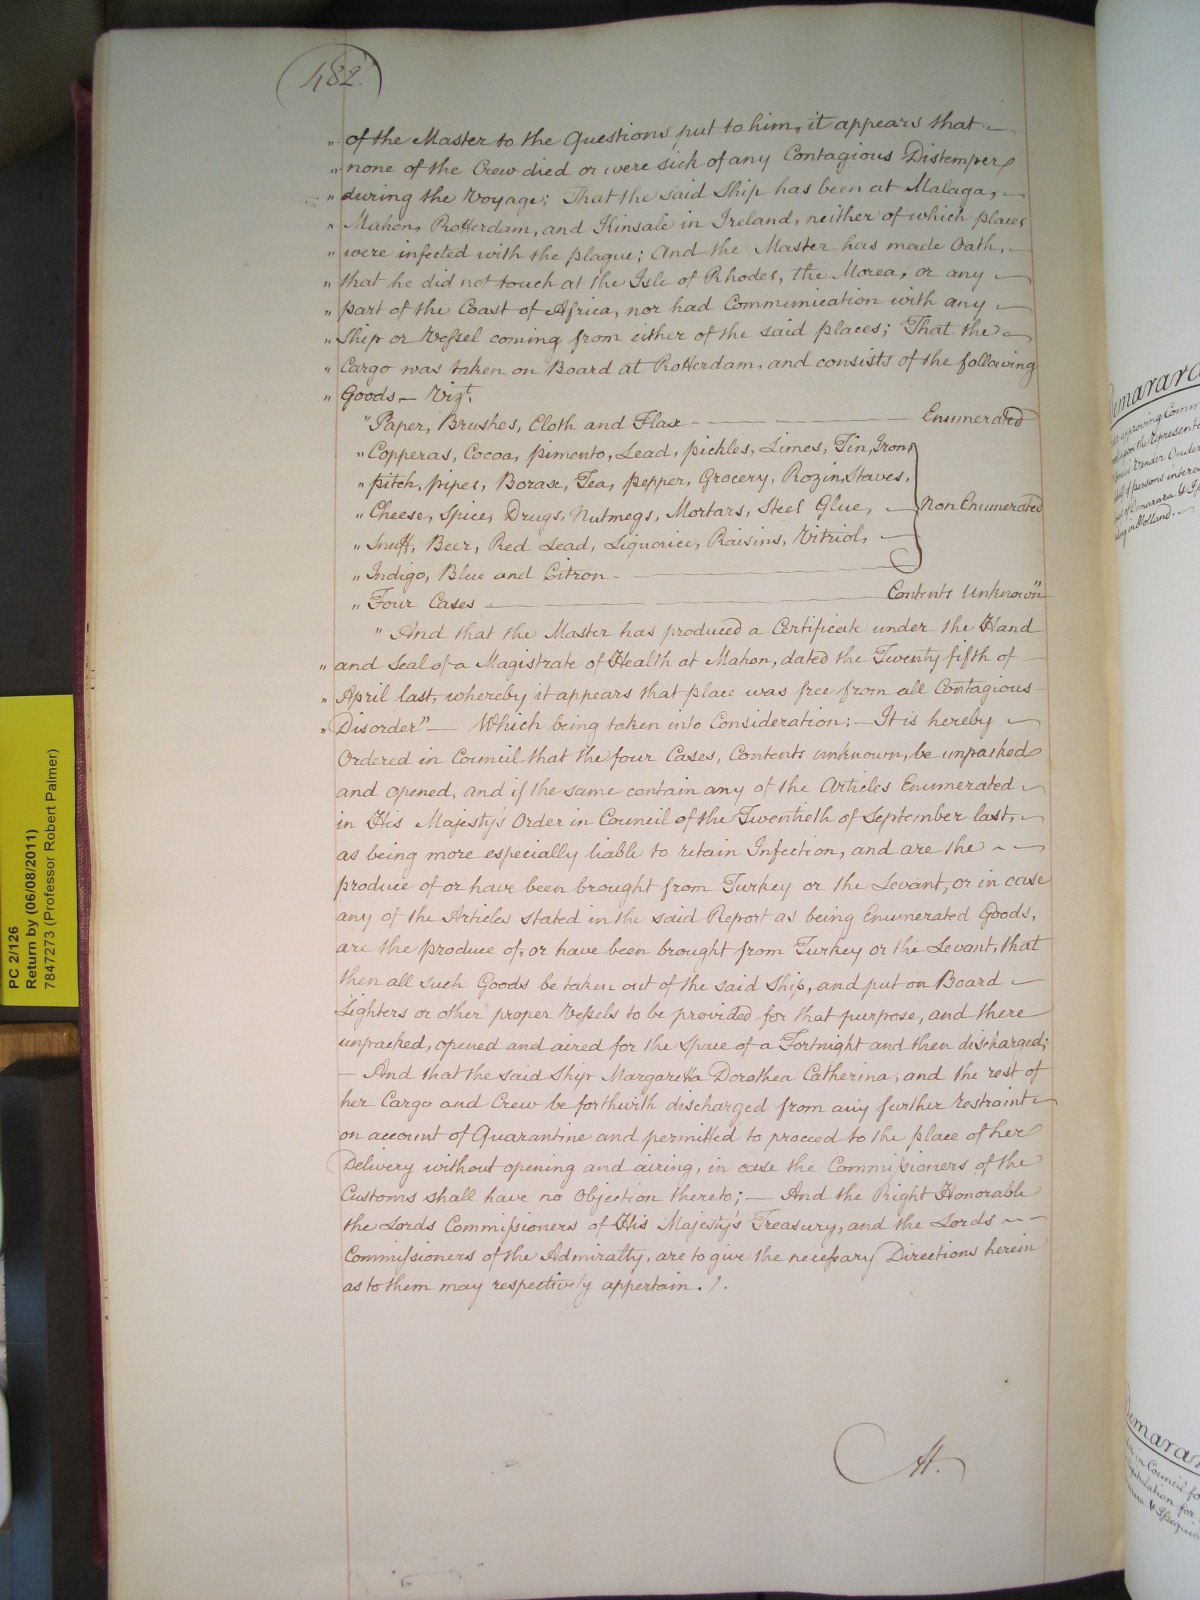 482.
" of the Master to the Questions put to him, it appears that
" none of the Crew died or were sick of any Contagious Distemper
" during the Voyage; That the said Ship has been at Malaga,
" Mahon, Rotterdam, and Kinsale in Ireland, neither of which places
" were infected with the plague; And the Master has made Oath,
" that he did not touch at the Isle of Rhodes, the Morea, or any
" part of the Coast of Africa, nor had Communication with any
" Ship or Vessel coming from either of the said places; That the
" Cargo was taken on Board at Rotterdam, and consists of the following
" Goods, Vizt.
" Paper, Brushes, Cloth and Flax — Enumerated
" Copperas, Cocoa, pimento, Lead, pickles, Limes, Tin, Iron,
" pitch, pipes, Borax, Tea, pepper, Grocery, Rozin, Staves,
" Cheese, Spice, Drugs, Nutmegs, Mortars, Steel Glue, — Non Enumerated
" Snuff, Beer, Red Lead, Liquorice, Raisins, Vitriol,
" Indigo, Blue and Citron —
" Four Cases — Contents Unknown"
" And that the Master has produced a Certificate under the Hand
" and Seal of a Magistrate of Health at Mahon, dated the Twenty fifth of
" April last, whereby it appears that place was free from all Contagious
" Disorder" — Which being taken into Consideration; — It is hereby
Ordered in Council that the four Cases, Contents unknown, be unpacked
and opened, and if the same contain any of the Articles Enumerated
in His Majesty's Order in Council of the Twentieth of September last,
as being more especially liable to retain Infection, and are the
produce of or have been brought from Turkey or the Levant, or in case
any of the Articles stated in the said Report as being Enumerated Goods,
are the produce of, or have been brought from Turkey or the Levant, that
then all such Goods be taken out of the said Ship, and put on Board
Lighters or other proper Vessels to be provided for that purpose, and there
unpacked, opened and aired for the Space of a Fortnight and then discharged;
— And that the said Ship Margaretta Dorothea Catherina, and the rest of
her Cargo and Crew be forthwith discharged from any further restraint
on account of Quarantine and permitted to proceed to the place of her
Delivery without opening and airing, in case the Commissioners of the
Customs shall have no Objection thereto; — And the Right Honorable
the Lords Commissioners of His Majesty's Treasury, and the Lords
Commissioners of the Admiralty, are to give the necessary Directions herein
as to them may respectively appertain. /.
At.
PC 2/126
Return by (06/08/2011)
7847273 (Professor Robert Palmer)